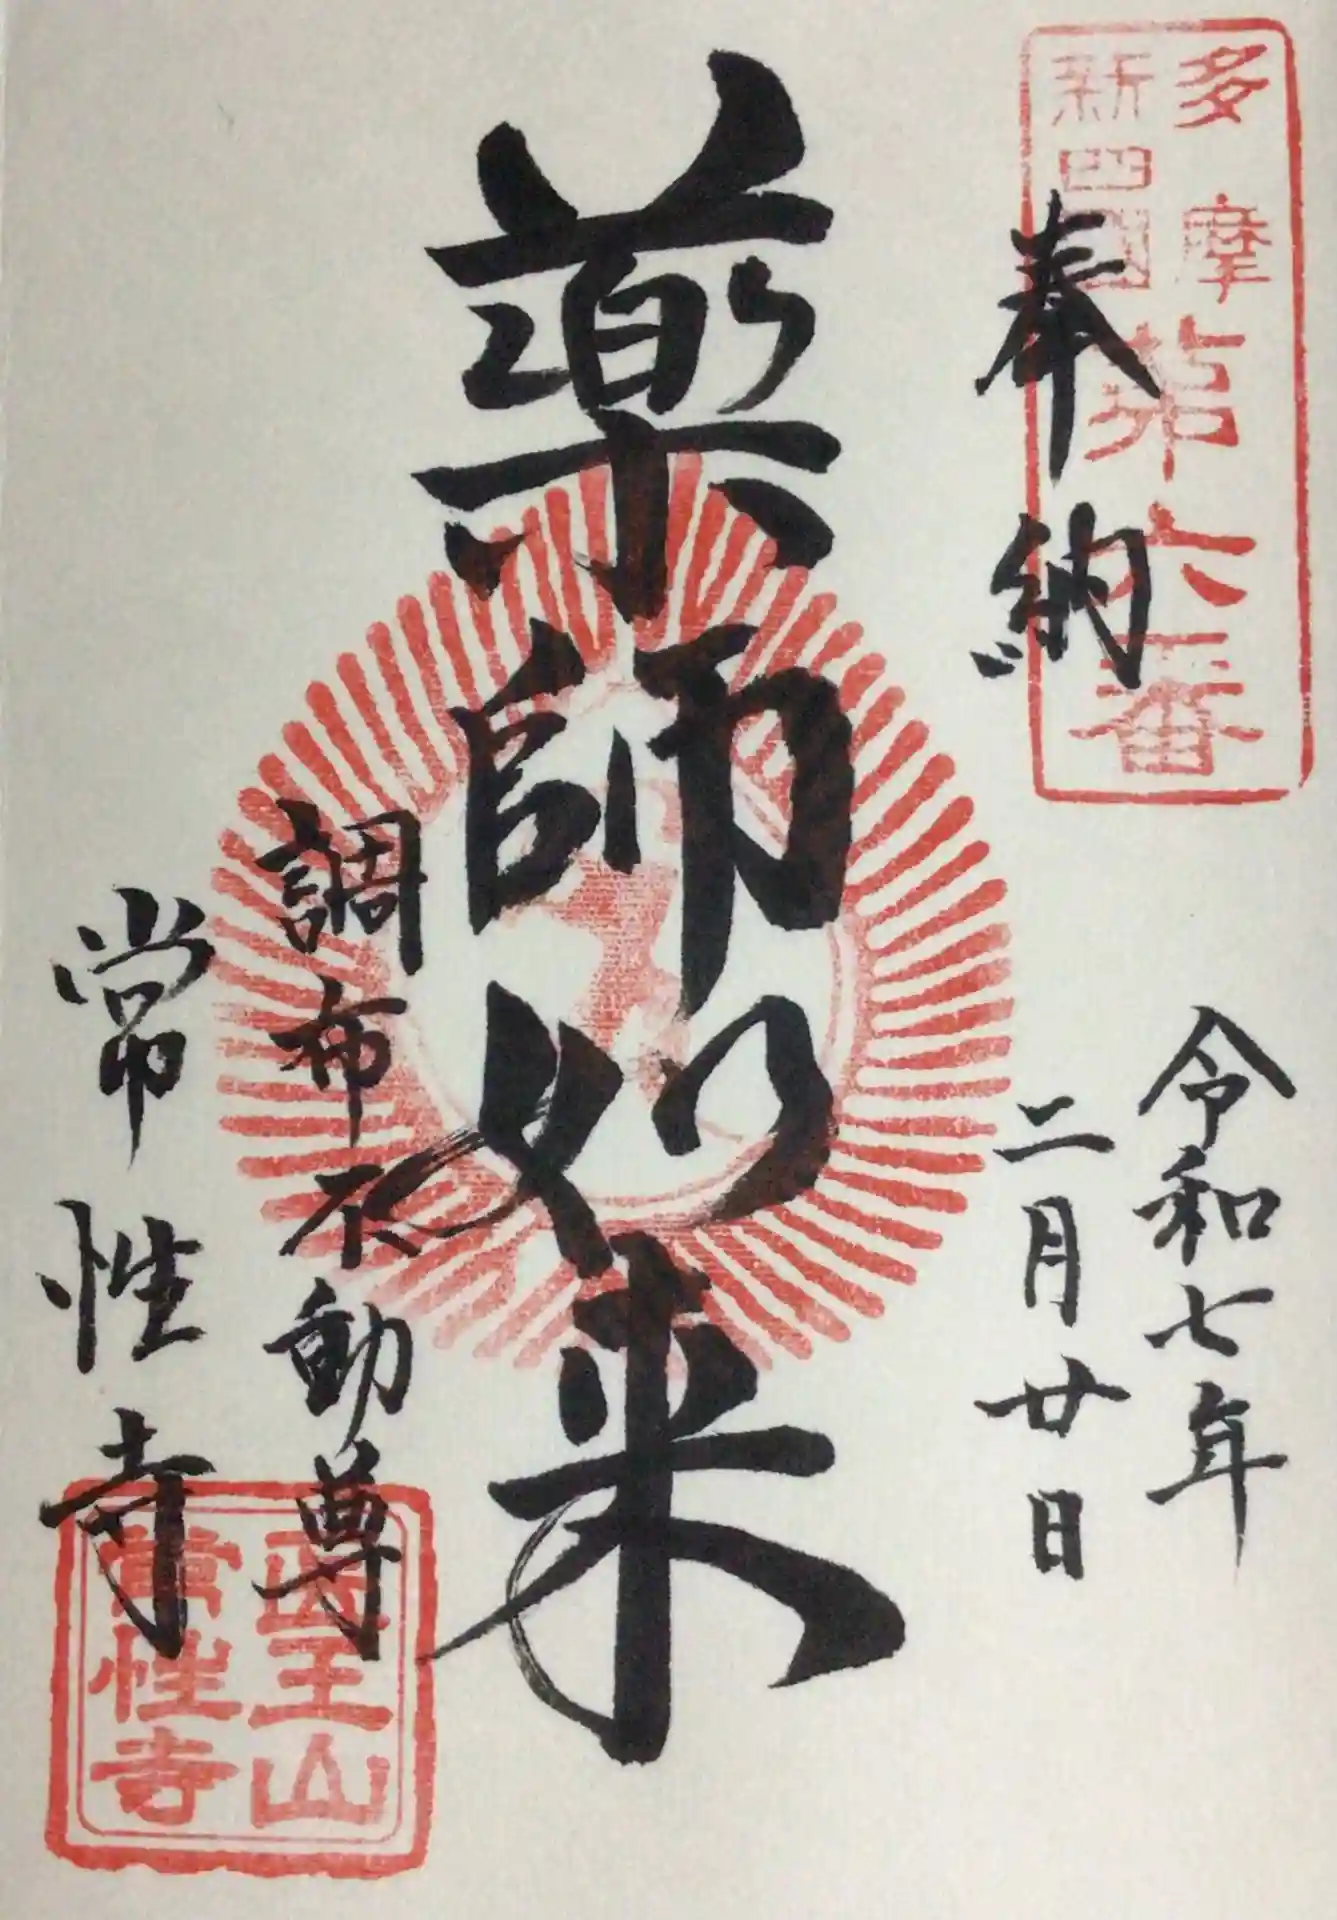 多摩
新四國
第六番
奉納
令和七年
二月廿日
薬師如来
調布不動尊
常性寺
医王山
常性寺